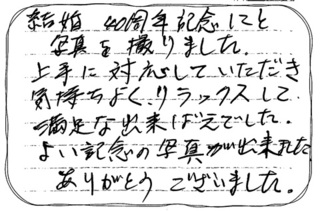 結婚 40周年記念にと
写真を撮りました。
上手に対応していただき
気持ちよく、リラックスして
満足な出来ばえでした。
よい記念の写真が出来ました
ありがとうございました。